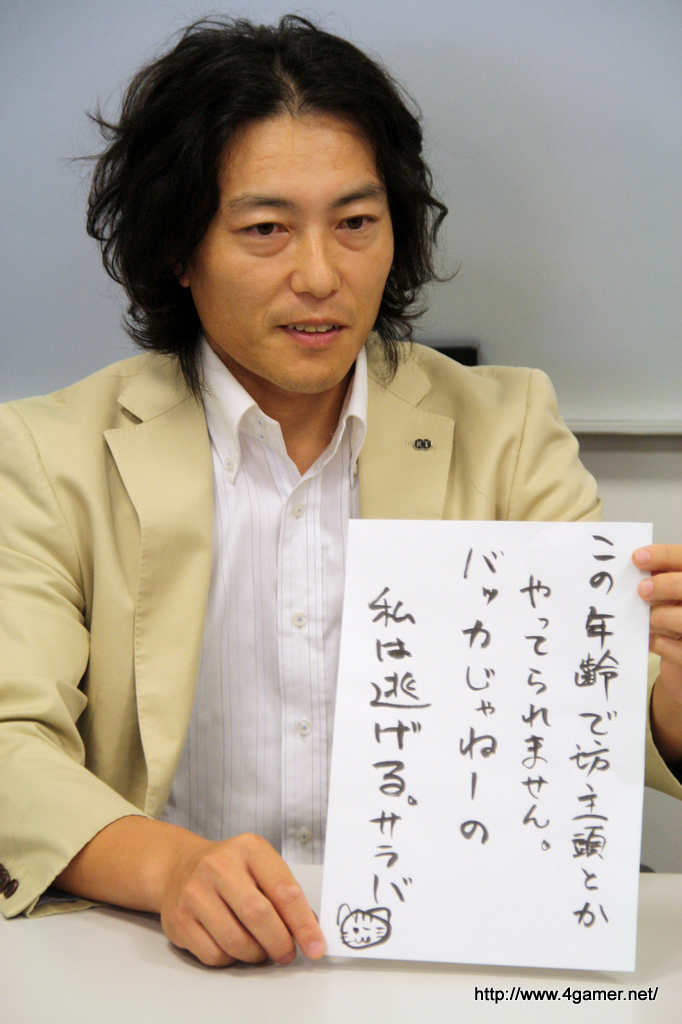 この年齢で坊主頭とか
やってられません。
バッカじゃねーの
私は逃げる。サラバ
http://www.4gamer.net/